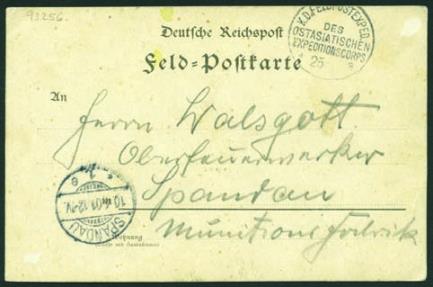 93256.
Deutsche Reichspost
Feld-Postkarte
K.D.FELDPOSTEXPED.
DES
OSTASIATISCHEN
EXPEDITIONSCORPS
25
a
An
Herrn Walsgott
Oberfeuerwerker
Spandau
Munitionsfabrik
SPANDAU
10.4.01.12-1V.